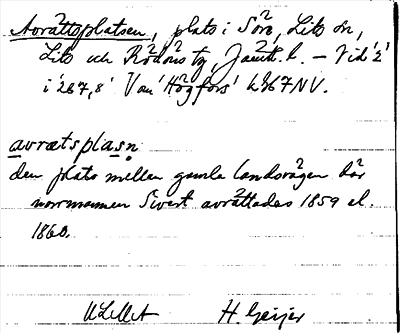 Avrättsplatsen, plats i Söre, Lits sn,
Lits och Rödöns tg, Jämtl. l. – Vid '2'
i '267,8' Van 'Högfors' k 467 NV.
avrætsplasn
den plats mellan gamla landsvägen där
norrmannen Sivert avrättades 1859 el.
1860.
H. Geijer